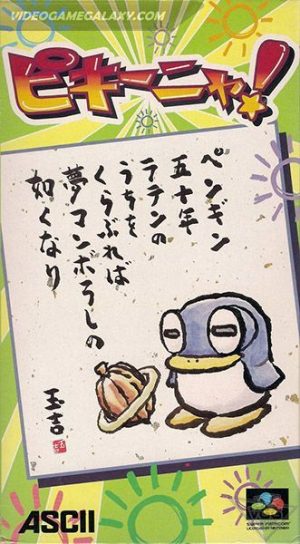 VIDEOGAMEGALAXY.COM
ピキーニャ!
ペンギン
五十年
ラテンの
うちを
くらぶれば
夢マンボろしの
如くなり
玉吉
ASCII
SUPER FAMICOM